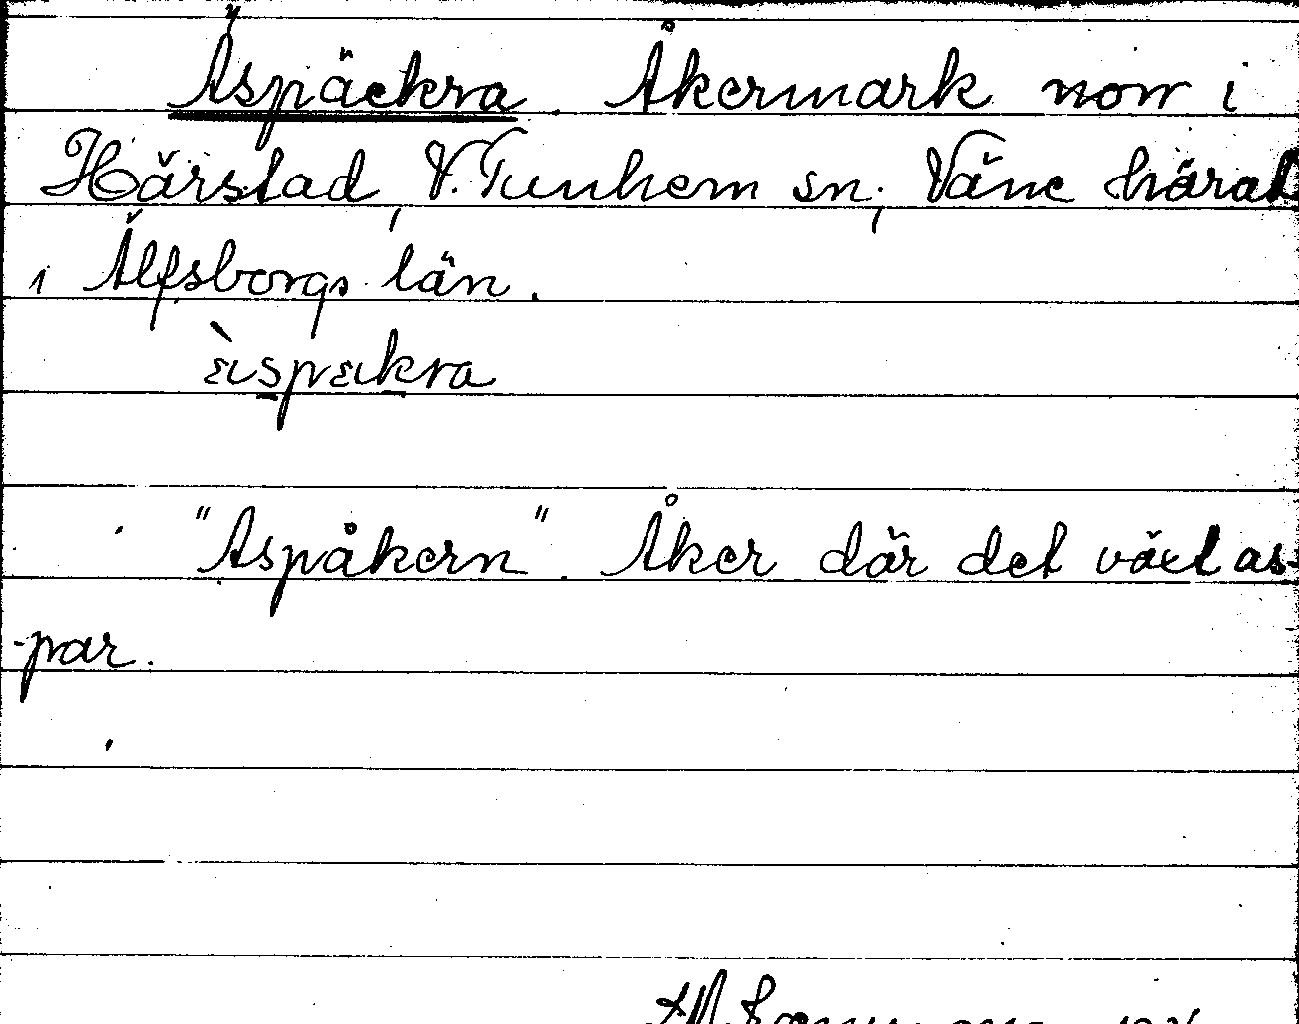 Äspäckra. Åkermark norr i
Härstad, V. Tunhem sn; Väne härad
i Älfsborgs län.
"Aspåkern". Åker där det växt as-
-par.